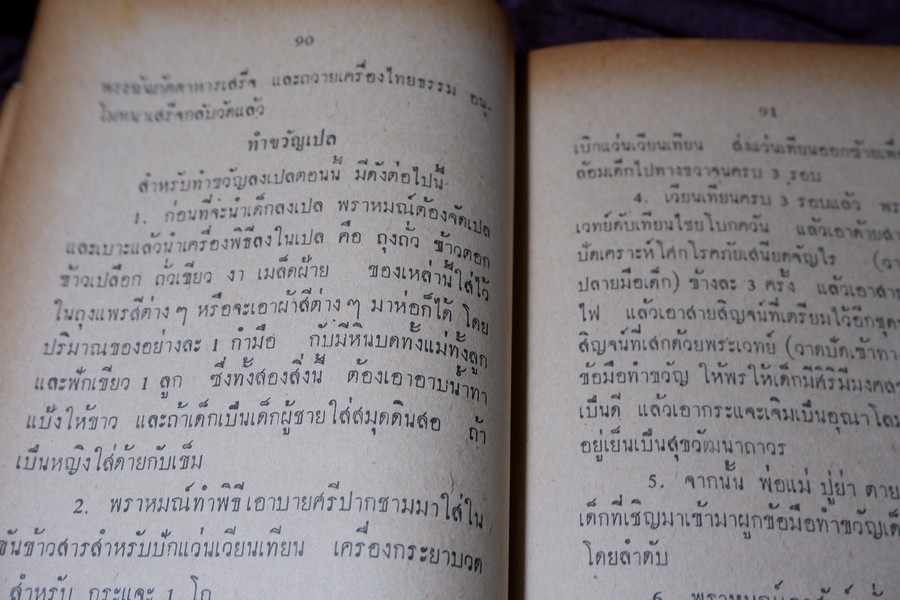 90
พระฉันภัตตาหารเสร็จ และถวายเครื่องไทยธรรม อนุ-
โมทนาเสร็จกลับวัดแล้ว
ทำขวัญเปล
สำหรับทำขวัญลงเปลตอนนี้ มีดังต่อไปนี้
1. ก่อนที่จะนำเด็กลงเปล พราหมณ์ต้องจัดเปล
และเบาะแล้วนำเครื่องพิธีลงในเปล คือ ถุงถั่ว ข้าวตอก
ข้าวเปลือก ถั่วเขียว งา เมล็ดฝ้าย ของเหล่านี้ใส่ไว้
ในถุงแพรสีต่าง ๆ หรือจะเอาผ้าสีต่าง ๆ มาห่อก็ได้ โดย
ปริมาณของอย่างละ 1 กำมือ กับมีหินบดทั้งแม่ทั้งลูก
และฟักเขียว 1 ลูก ซึ่งทั้งสองสิ่งนี้ ต้องเอาอาบน้ำทา
แป้งให้ขาว และถ้าเด็กเป็นเด็กผู้ชายใส่สมุดดินสอ ถ้า
เป็นหญิงใส่ด้ายกับเข็ม
2. พราหมณ์ทำพิธีเอาบายศรีปากชามมาใส่ใน
ขันข้าวสารสำหรับปักแว่นเวียนเทียน เครื่องกระยาบวด
สำหรับ กระแจะ 1 โถ
91
เบิกแว่นเวียนเทียน ส่งแว่นเทียนออกซ้ายเพื่อ
ล้อมเด็กไปทางขวาจนครบ 3 รอบ
4. เวียนเทียนครบ 3 รอบแล้ว
เวทย์ดับเทียนไชยโบกควัน แล้วเอาด้าย
ปัดเคราะห์โศกโรคภัยเสนียดจัญไร
ปลายมือเด็ก) ข้างละ 3 ครั้ง แล้วเอาสาย
ไฟ แล้วเอาสายสิญจน์ที่เตรียมไว้อีกชุด
สิญจน์ที่เสกด้วยพระเวทย์ (วาดปัดเข้าทาง
ข้อมือทำขวัญ ให้พรให้เด็กมีศิริมีมงคล
เป็นดี แล้วเอากระแจะเจิมเป็นอุณาโลม
อยู่เย็นเป็นสุขวัฒนาถาวร
5. จากนั้น พ่อแม่ ปู่ย่า ตายาย
เด็กที่เชิญมาเข้ามาผูกข้อมือทำขวัญ
โดยลำดับ
6. พราหมณ์